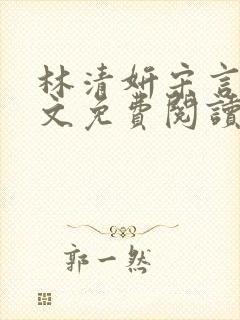 林清妍宋言
文免費閱讀
郭一然